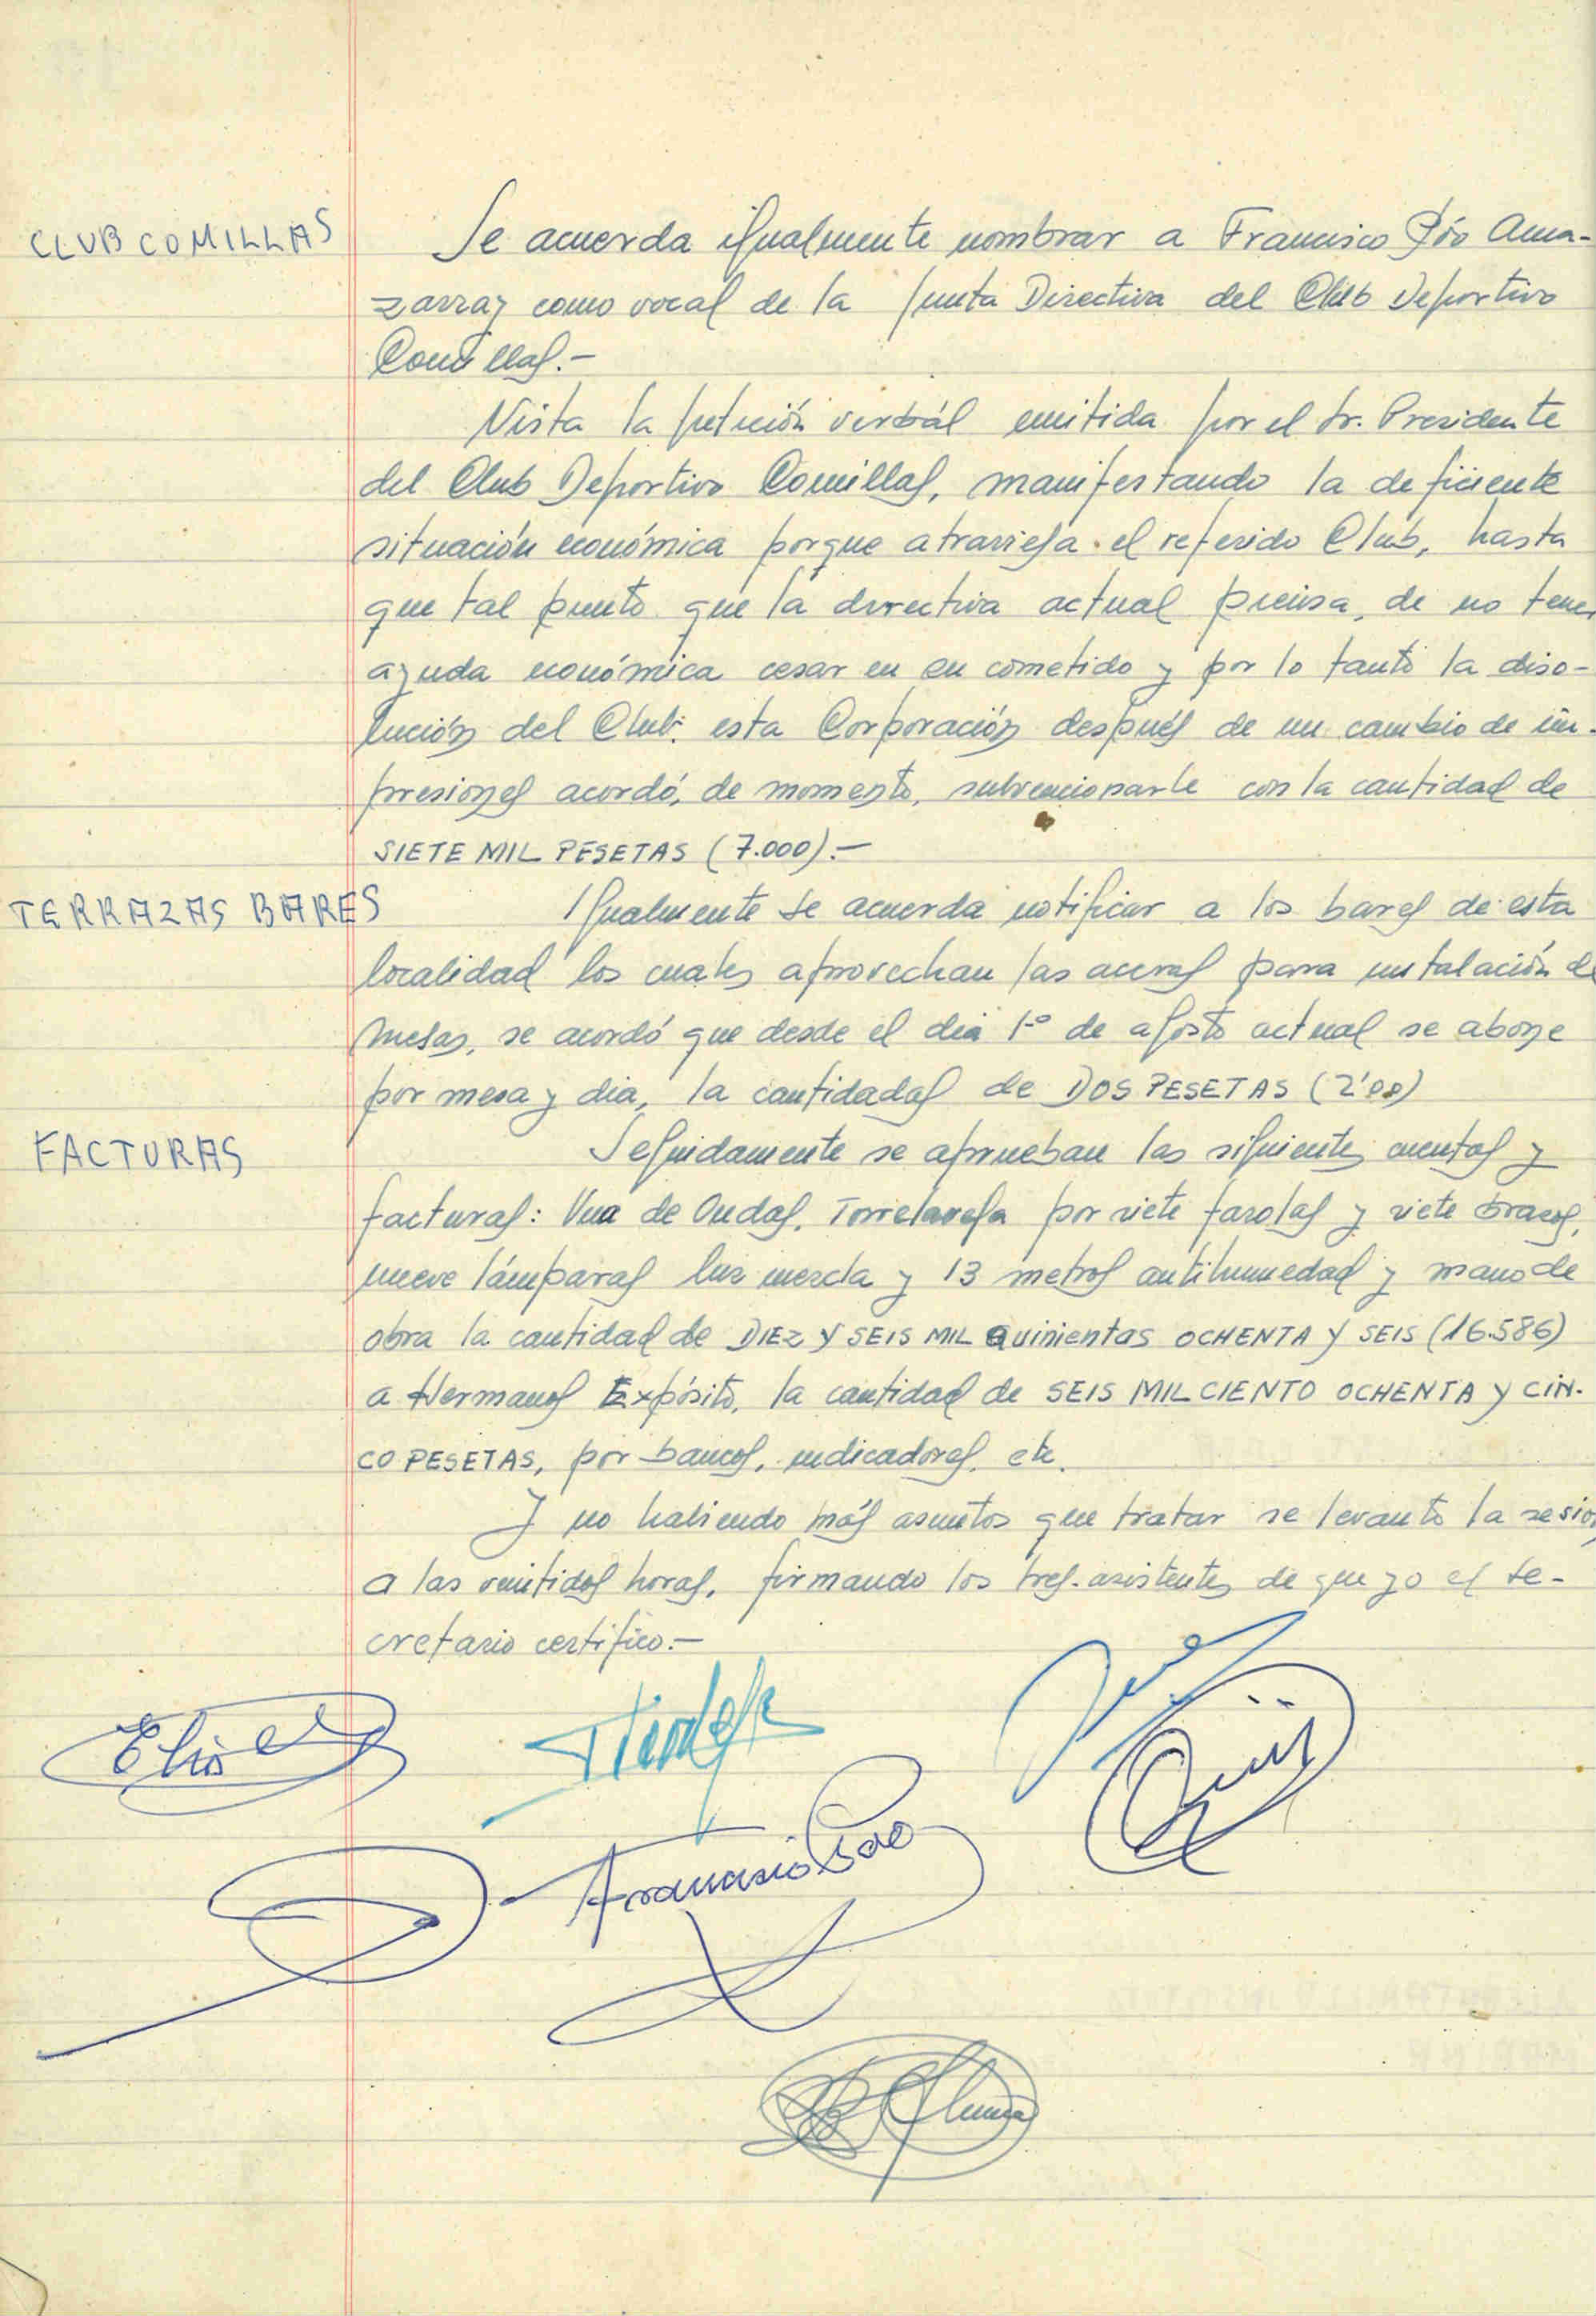 CLUB COMILLAS
Se acuerda igualmente nombrar a Francisco Pío Ama-
zarray como vocal de la Junta Directiva del Club Deportivo
Comillas.-
Vista la petición verbál emitida por el Sr. Presidente
del Club Deportivo Comillas, manifestando la deficiente
situación económica porque atraviesa el referido Club, hasta
que tal punto que la directiva actual piensa, de no tener
ayuda económica cesar en su cometido y por lo tanto la diso-
lución del Club: esta Corporación después de un cambio de im-
presiones acordó, de momento, subvencionarle con la cantidad de
SIETE MIL PESETAS (7.000).-
TERRAZAS BARES
Igualmente se acuerda notificar a los bares de esta
localidad los cuales aprovechan las aceras para instalación de
mesas, se acordó que desde el dia 1º de agosto actual se abone
por mesa y dia, la cantidadas de DOS PESETAS (2'00)
FACTURAS
Seguidamente se aprueban las siguientes cuentas y
facturas: Vua de Ondas, Torrelavega por siete farolas y siete brazos,
nueve lámparas luz mezcla y 13 metros antihumedad y mano de
obra la cantidad de DIEZ Y SEIS MIL Quinientas OCHENTA Y SEIS (16.586)
a Hermanos Expósito, la cantidad de SEIS MIL CIENTO OCHENTA Y CIN-
CO PESETAS, por bancos, indicadores, etc.
Y no habiendo más asuntos que tratar se levanto la sesion
a las veintidos horas, firmando los tres. asistentes de que yo el Se-
cretario certifico.-
Elias
Francisco Pío